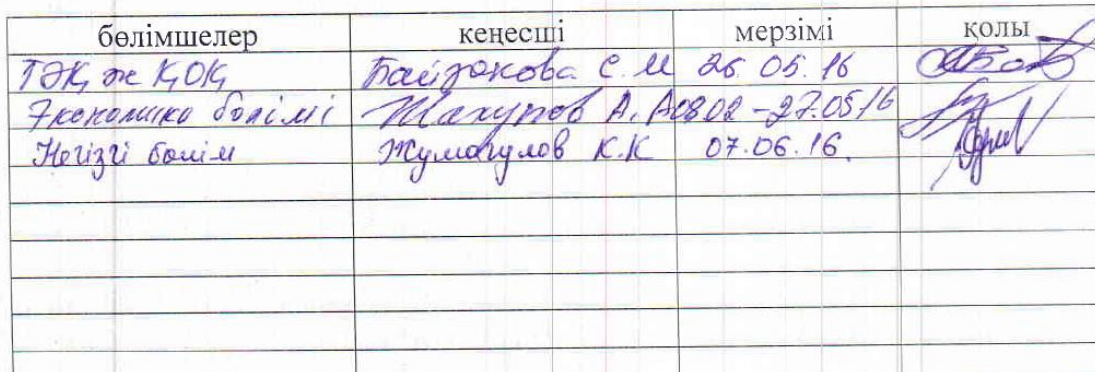 бөлімшелер кеңесші мерзімі қолы
ТӘҚ ж ҚОҚ Байзакова С.М 26.05.16
Экономика бөлімі А.А 08.02-27.05.16
Негізгі бөлім Жумагулов К.К 07.06.16.